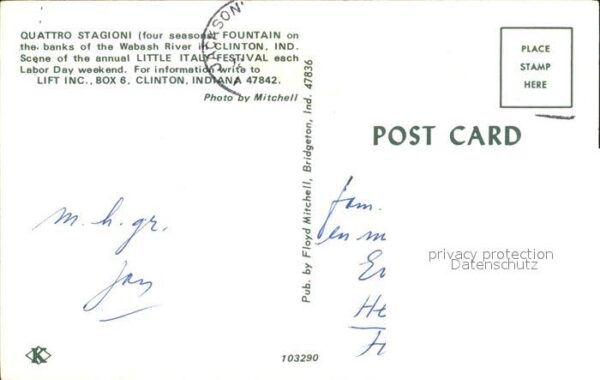 QUATTRO STAGIONI (four seasons) FOUNTAIN on
the banks of the Wabash River in CLINTON, IND.
Scene of the annual LITTLE ITALY FESTIVAL each
Labor Day weekend. For information write to
LIFT INC., BOX 6, CLINTON, INDIANA 47842.
Photo by Mitchell
JACKSON
PLACE
STAMP
HERE
POST CARD
Pub. by Floyd Mitchell, Bridgeton, Ind. 47836
m. h. gr.
Jan
fam.
en m
privacy protection
Datenschutz
K
103290